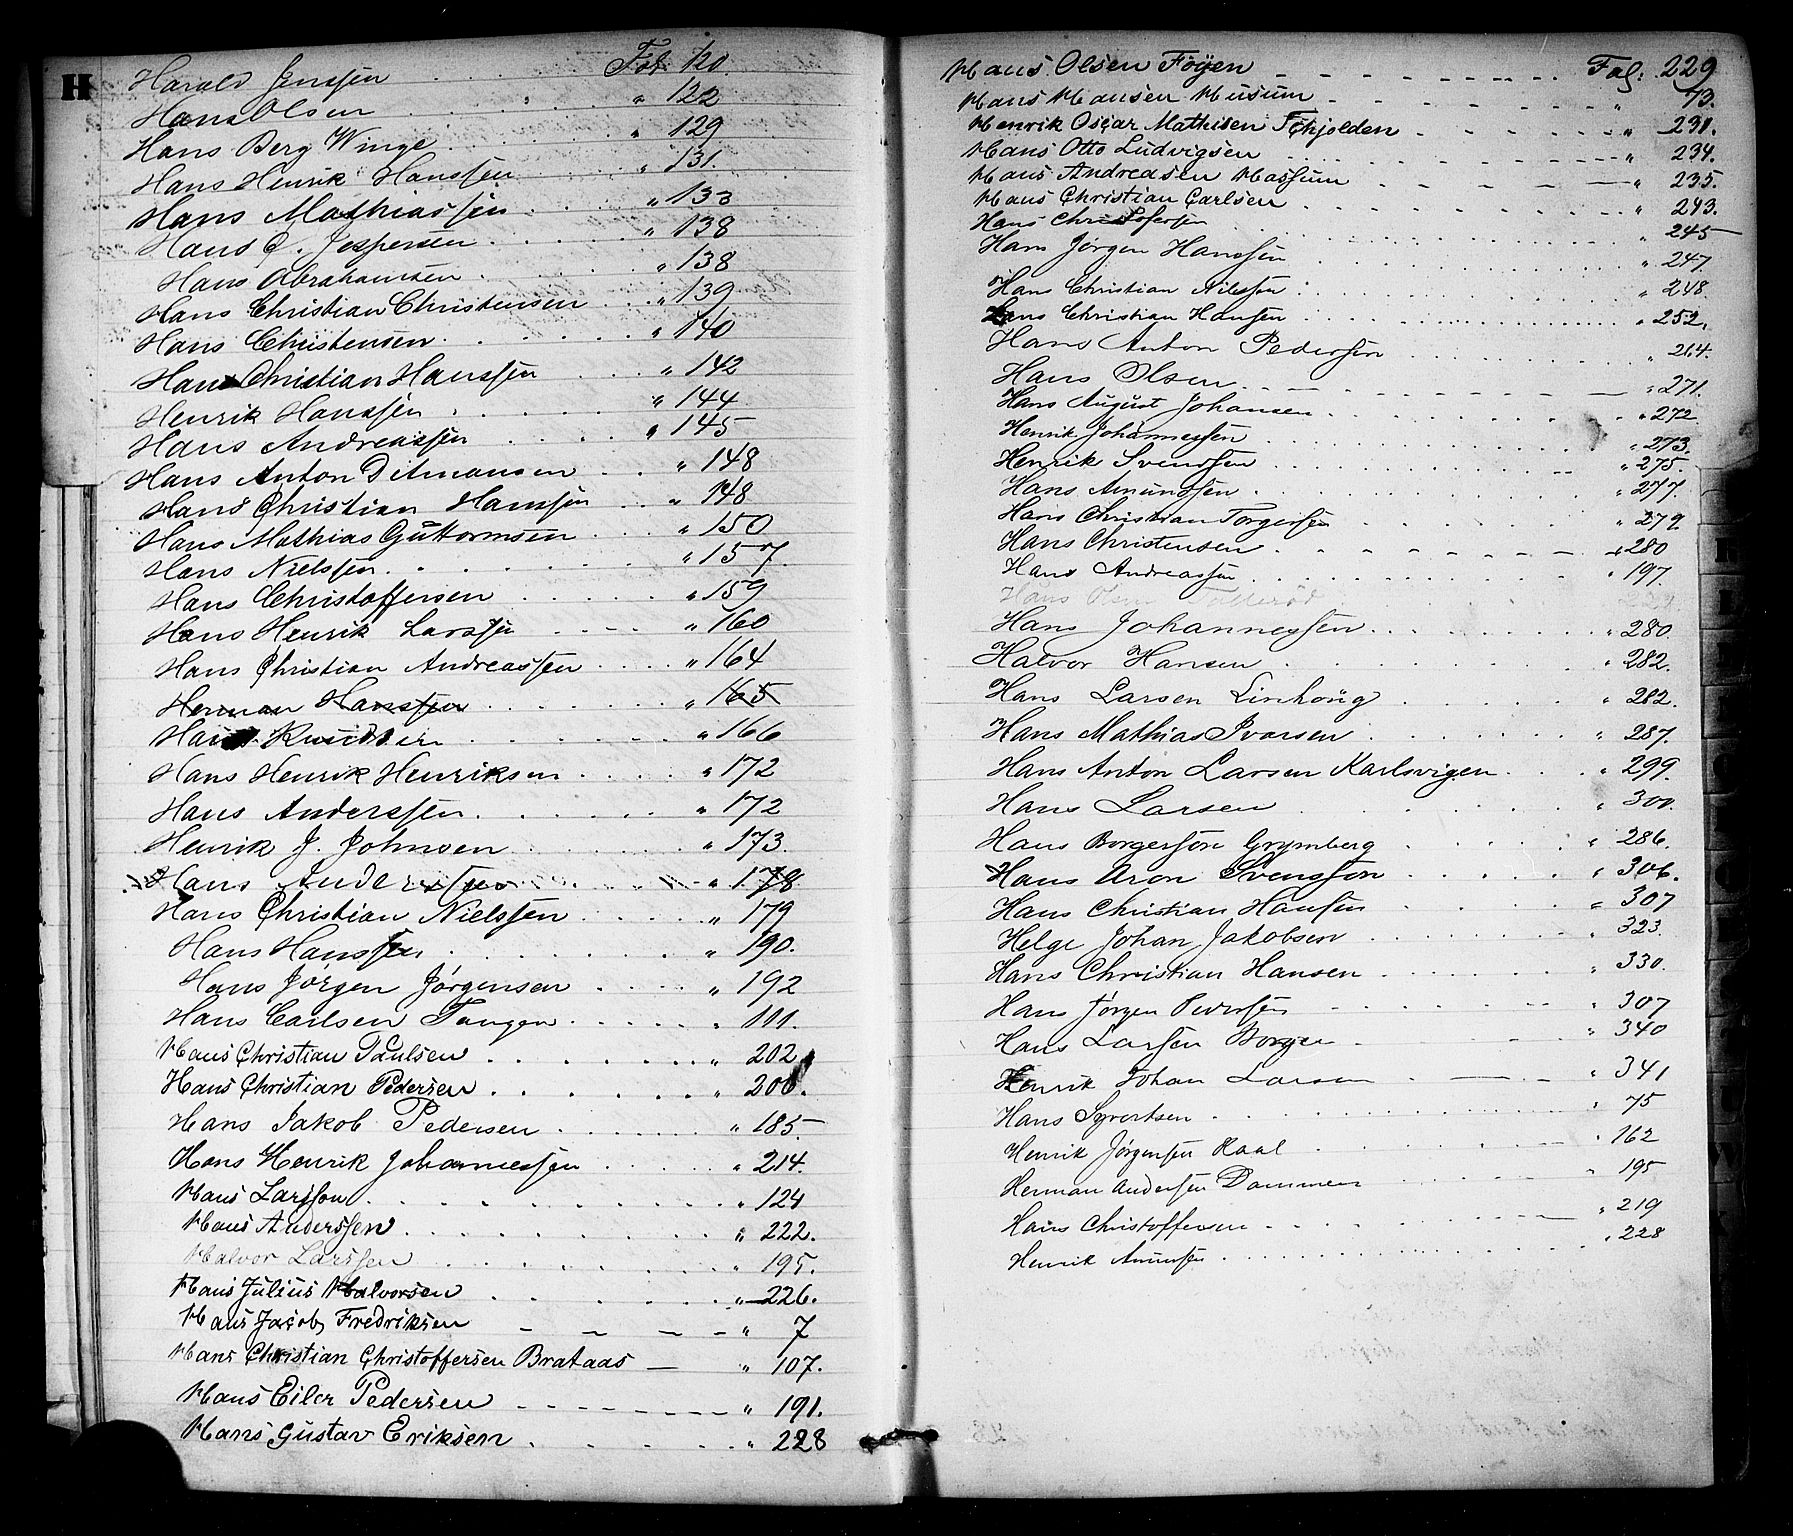 H
Harald Jenssen Fol. 120.
Hans Olsen " 122
Hans Berg Winge " 129
Hans Henrik Hanssen " 131.
Hans Mathiassen " 133
Hans C. Jespersen " 138
Hans Abrahamsen " 138
Hans Christian Christensen " 139
Hans Christensen " 140
Hans Christian Hanssen " 142
Henrik Hanssen " 144
Hans Andreassen " 145
Hans Anton Ditmansen " 148
Hans Christian Hanssen " 148
Hans Mathias Guttormsen " 150
Hans Nielssen " 157
Hans Christoffersen " 159
Hans Henrik Larssen " 160
Hans Christian Andreassen " 164
Herman Hanssen " 165
Hans Knudsen " 166
Hans Henrik Henriksen " 172
Hans Anderssen " 172
Henrik J. Johnsen " 173.
Hans Anderssen " 178
Hans Christian Nielssen " 179
Hans Hanssen " 190.
Hans Jörgen Jörgensen " 192
Hans Carlsen Tangen " 191.
Hans Christian Paulsen " 202
Hans Christian Pedersen " 206.
Hans Jakob Pedersen " 185
Hans Henrik Johannessen " 214.
Hans Larsson " 124
Hans Anderssen " 222.
Halvor Larssen " 195.
Hans Julius Halvorsen " 226.
Hans Jacob Fredriksen " 7
Hans Christian Christoffersen Brataas " 107.
Hans Eiler Pedersen " 191.
Hans Gustav Eriksen " 228
Hans Olsen Föyen Fol. 229
Hans Hansen Husum " 73.
Henrik Oscar Mathisen Fohjolden " 231.
Hans Otto Ludvigsen " 234.
Hans Andreasen Hassum " 235.
Hans Christian Carlsen " 243.
Hans Christofersen " 245
Hans Jörgen Hanssen " 247
Hans Christian Nilssen " 248
Hans Christian Hansen " 252.
Hans Anton Pedersen " 264.
Hans Olsen " 271.
Hans August Johansen " 272
Henrik Johannessen " 273.
Henrik Svendsen " 275.
Hans Amundsen " 277.
Hans Christian Torgersen " 279.
Hans Christensen " 280
Hans Andreassen " 197.
Hans Olsen
Hans Johannessen " 280.
Halvor Hansen " 282.
Hans Larsen Linhöug " 282.
Hans Mathias Ivarsen " 287.
Hans Anton Larsen Karlsvigen " 299.
Hans Larsen " 300.
Hans Borgersön Grymberg " 286.
Hans Aron Svensson " 306.
Hans Christian Hansen " 307
Helge Johan Jakobsen " 323.
Hans Christian Hansen " 330.
Hans Jörgen Pedersen " 307
Hans Larsen Borgen " 340
Henrik Johan Larsen " 341
Hans Syvertsen " 75
Henrik Jørgensen Raal " 162
Herman Andersen Dammen " 195
Hans Christoffersen " 219
Henrik Amunsen " 228